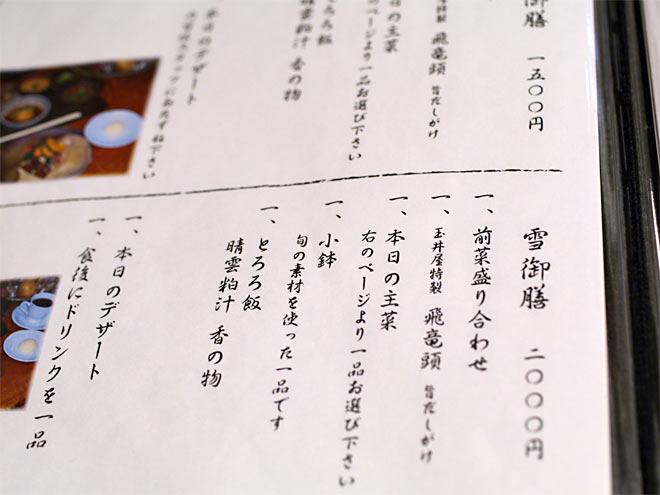 御膳 一五〇〇円
特製 飛竜頭 旨だしがけ
日の主菜
のページより一品お選び下さい
とろろ飯
晴雲粕汁 香の物
本日のデザート
雪御膳 二〇〇〇円
一、前菜盛り合わせ
一、玉井屋特製 飛竜頭 旨だしがけ
一、本日の主菜
右のページより一品お選び下さい
一、小鉢
旬の素材を使った一品です
一、とろろ飯
晴雲粕汁 香の物
一、本日のデザート
一、食後にドリンクを一品